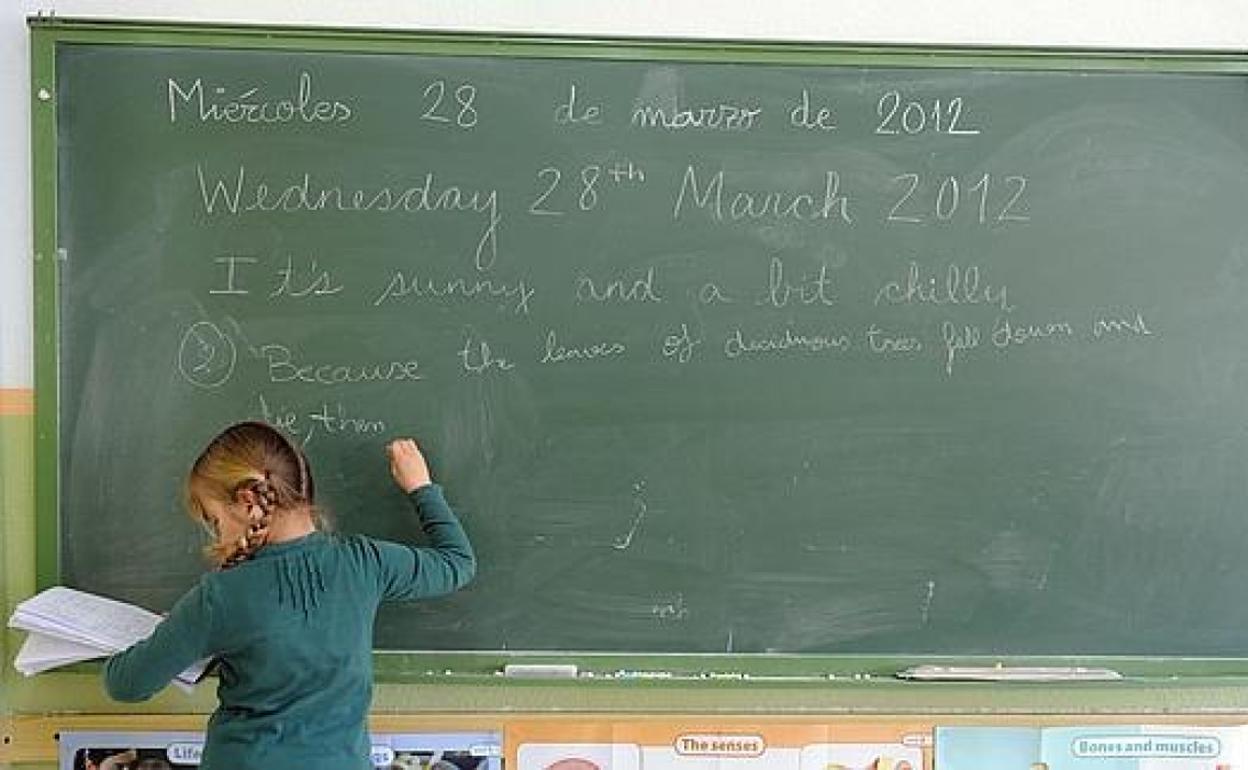 Miércoles 28 de marzo de 2012
Wednesday 28th March 2012
It's sunny and a bit chilly
Because the leaves of deciduous trees fall down and
die, then
The senses
Bones and muscles